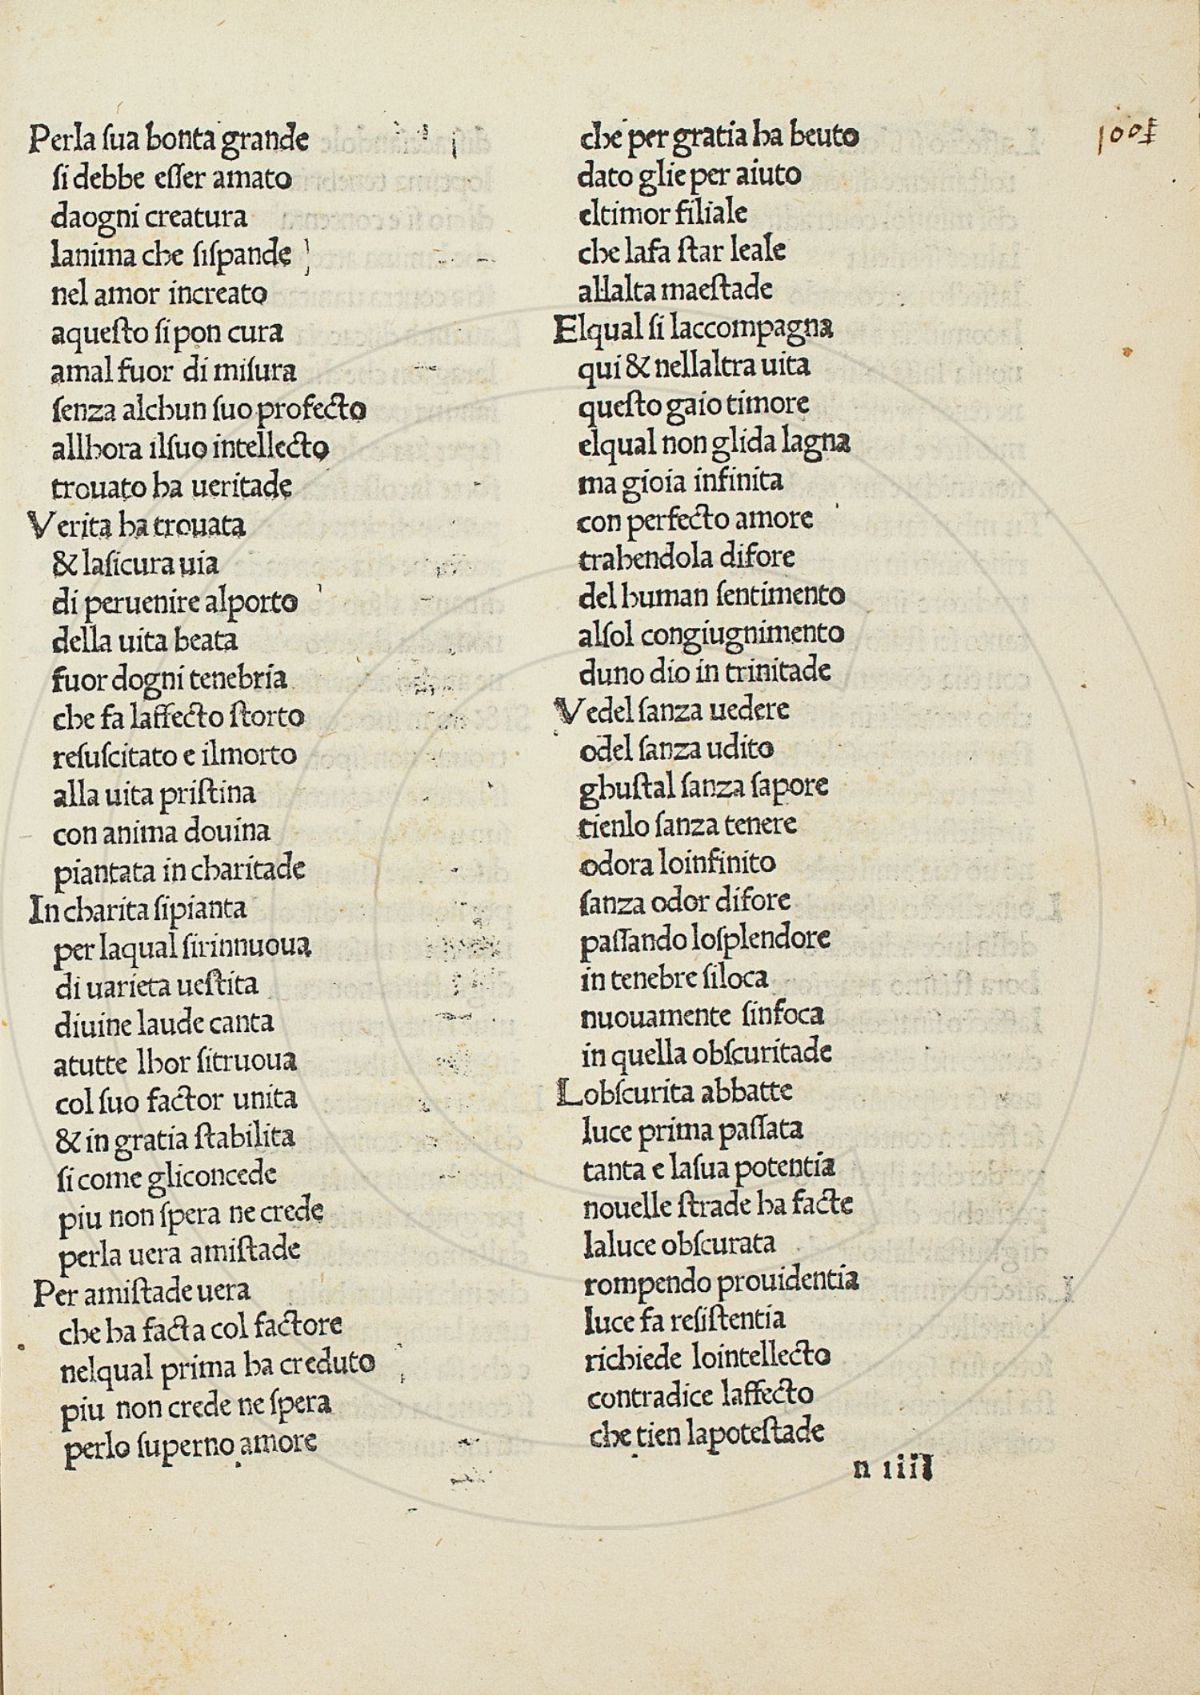 Perla sua bonta grande
si debbe esser amato
daogni creatura
lanima che sispande
nel amor increato
aquesto si pon cura
amal fuor di misura
senza alchun suo profecto
allhora ilsuo intellecto
trouato ha ueritade
Verita ha trouata
& lasicura uia
di peruenire alporto
della uita beata
fuor dogni tenebria
che fa laffecto storto
resuscitato e ilmorto
alla uita pristina
con anima douina
piantata in charitade
In charita sipianta
per laqual sirinnuoua
di uarieta uestita
diuine laude canta
atutte lhor sitruoua
col suo factor unita
& in gratia stabilita
si come gliconcede
piu non spera ne crede
perla uera amistade
Per amistade uera
che ha facta col factore
nelqual prima ha creduto
piu non crede ne spera
perlo superno amore
che per gratia ha beuto
dato glie per aiuto
eltimor filiale
che lafa star leale
allalta maestade
Elqual si laccompagna
qui & nellaltra uita
questo gaio timore
elqual non glida lagna
ma gioia infinita
con perfecto amore
trahendola difore
del human sentimento
alsol congiugnimento
duno dio in trinitade
Vedel sanza uedere
odel sanza udito
ghustal sanza sapore
tienlo sanza tenere
odora loinfinito
sanza odor difore
passando losplendore
in tenebre siloca
nuouamente sinfoca
in quella obscuritade
Lobscurita abbatte
luce prima passata
tanta e lasua potentia
nouelle strade ha facte
laluce obscurata
rompendo prouidentia
luce fa resistentia
richiede lointellecto
contradice laffecto
che tien lapotestade
n iiii